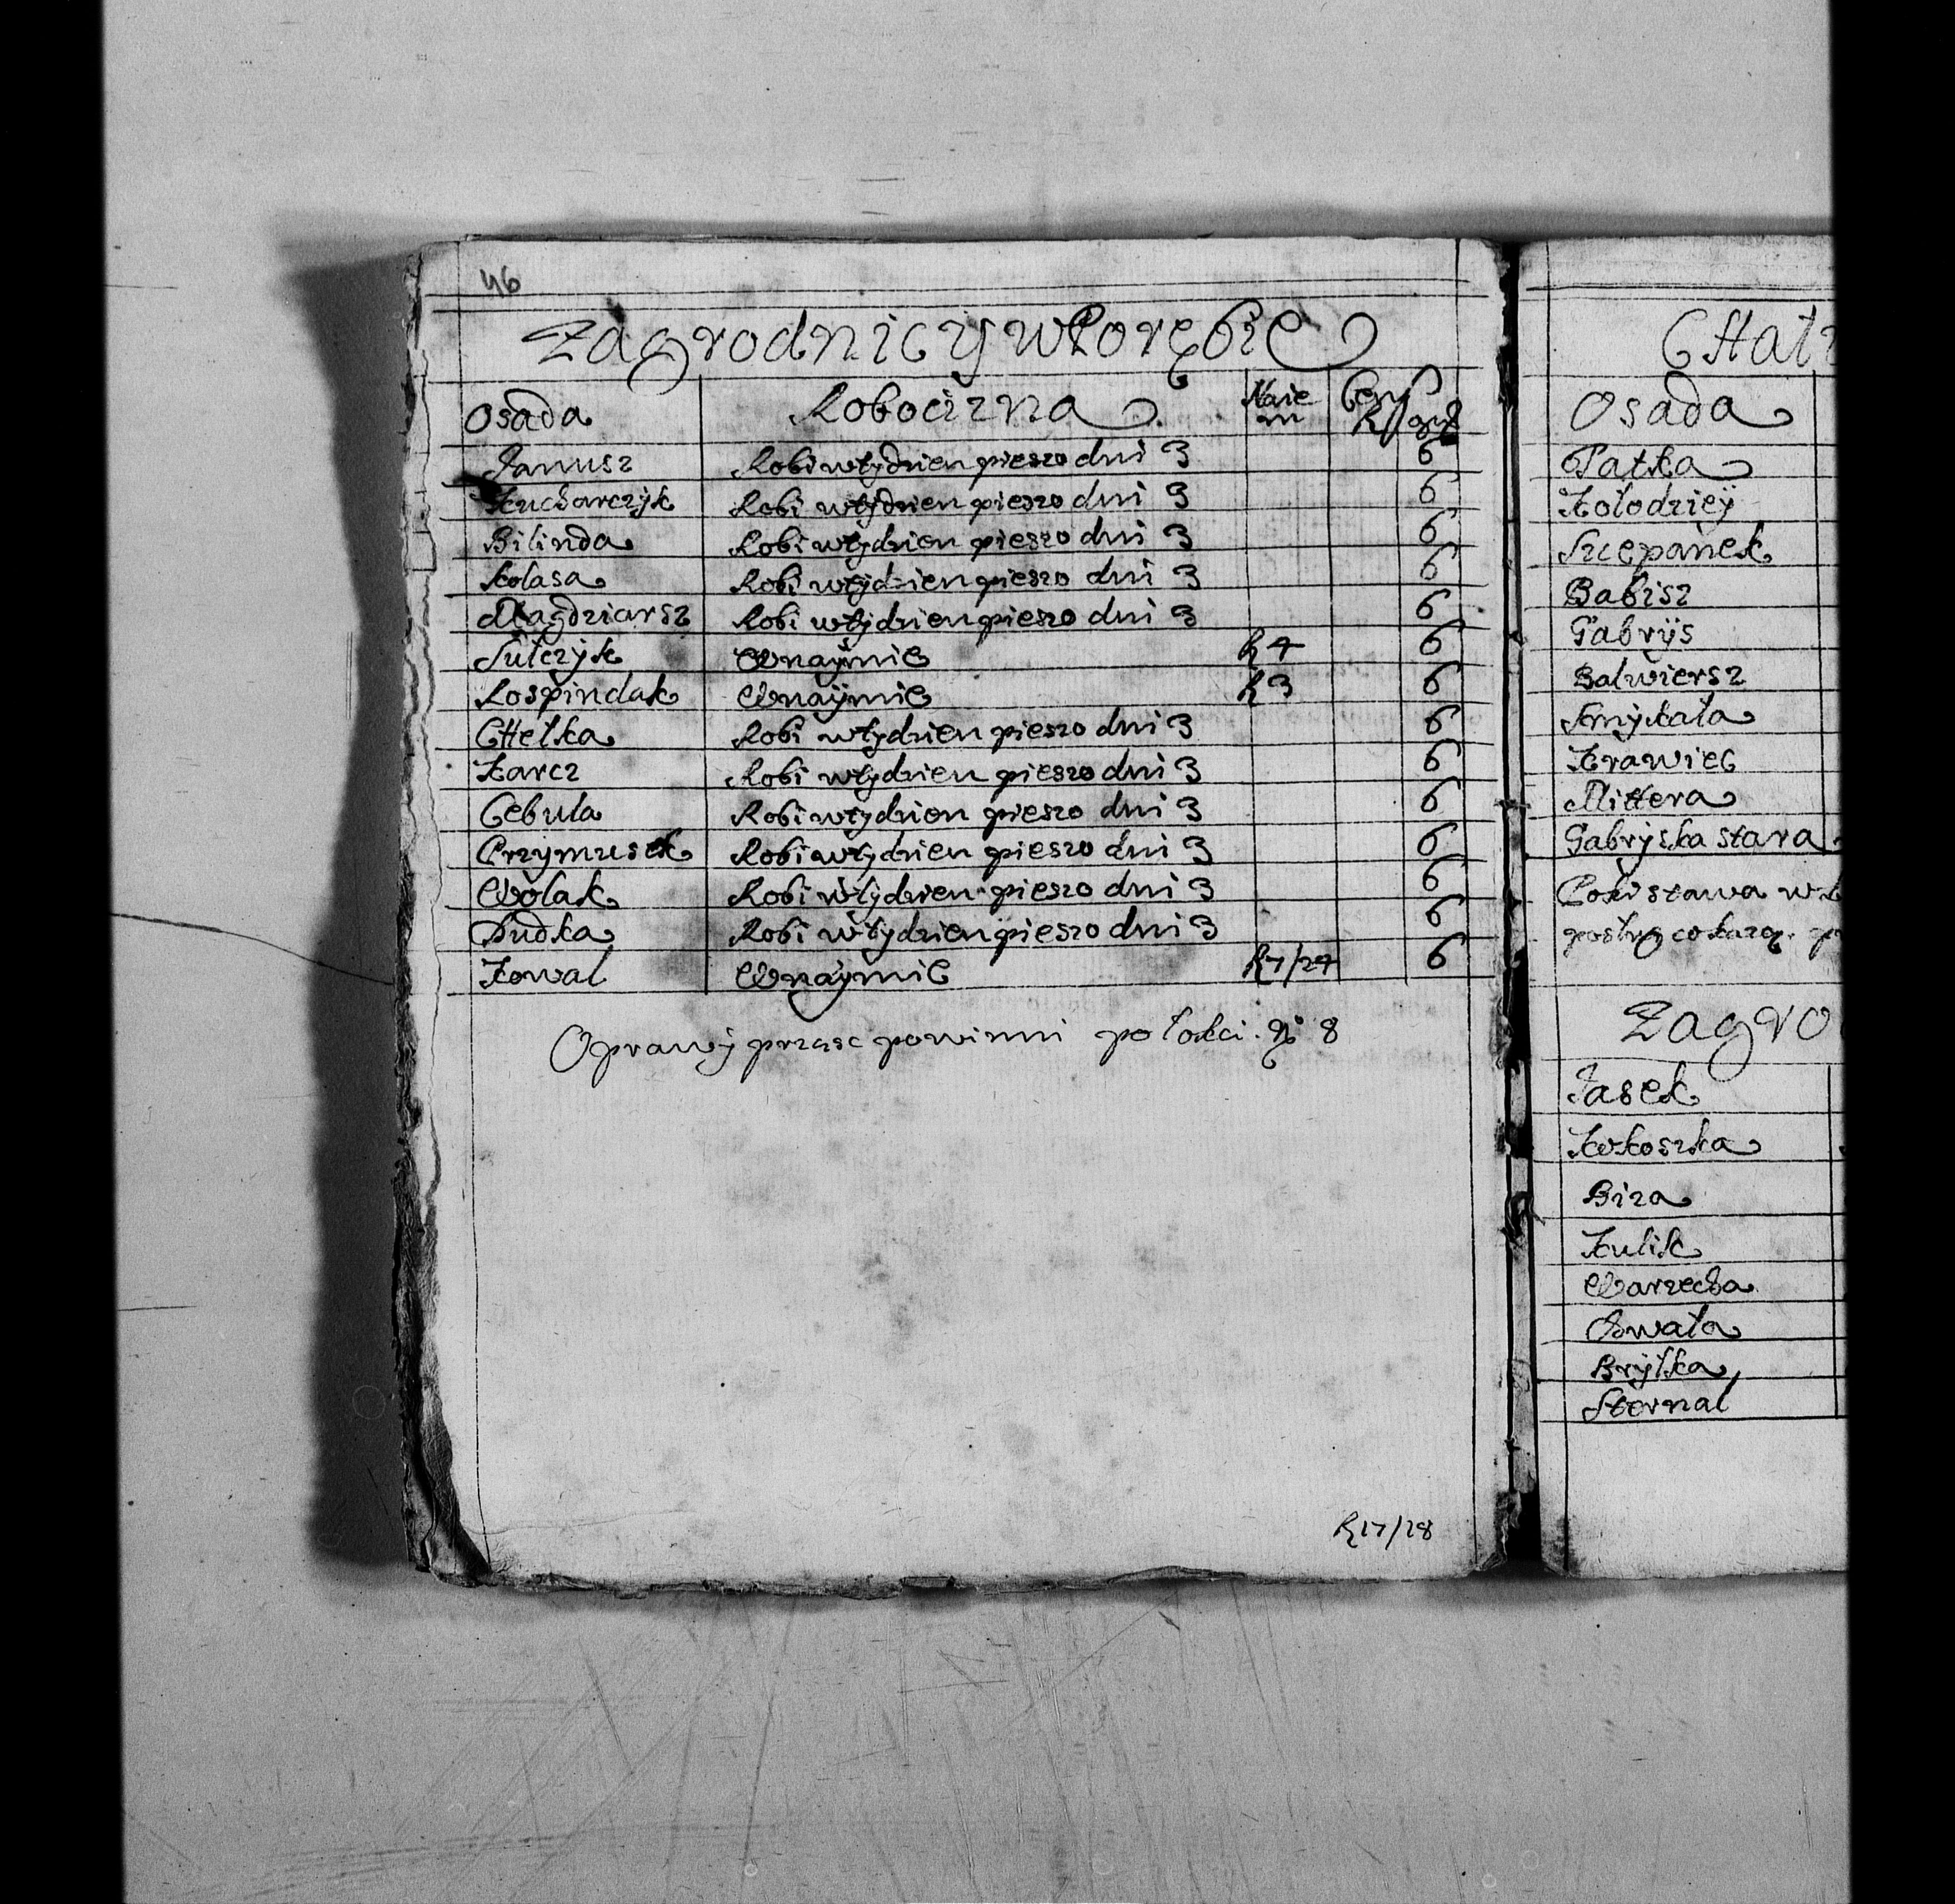 46
Zagrodnicy w Porębie
Osada Robocizna Naie Czynsz
m R gr
Janusz Robi w tydzien pieszo dni 3 6
Kucharczyk Robi w tydzien pieszo dni 3 6
Bilinda Robi w tydzien pieszo dni 3 6
Kolasa Robi w tydzien pieszo dni 3 6
Magdziarsz Robi w tydzien pieszo dni 3 6
Sulczyk Wnaÿmie R 4 6
Rospindak Wnaÿmie R 3 6
Chełka Robi w tydzien pieszo dni 3 6
Karcz Robi w tydzien pieszo dni 3 6
Cebula Robi w tydzien pieszo dni 3 6
Przymusek Robi w tydzien pieszo dni 3 6
Wolak Robi w tydzien pieszo dni 3 6
Dudka Robi w tydzien pieszo dni 3 6
Kowal Wnaymie R 7/24 6
Oprawy przasc powinni po łokci. No 8
R 17/18
Chał
Osada
Patka
Kołodzieÿ
Szczepanek
Babisz
Gabrÿs
Balwiersz
Smÿkała
Krawiec
Mittera
Gabrÿska stara
Zagro
Jasek
Kokoszka
Biza
Kulik
Warzecha
Kowala
Brÿłka
Sternal